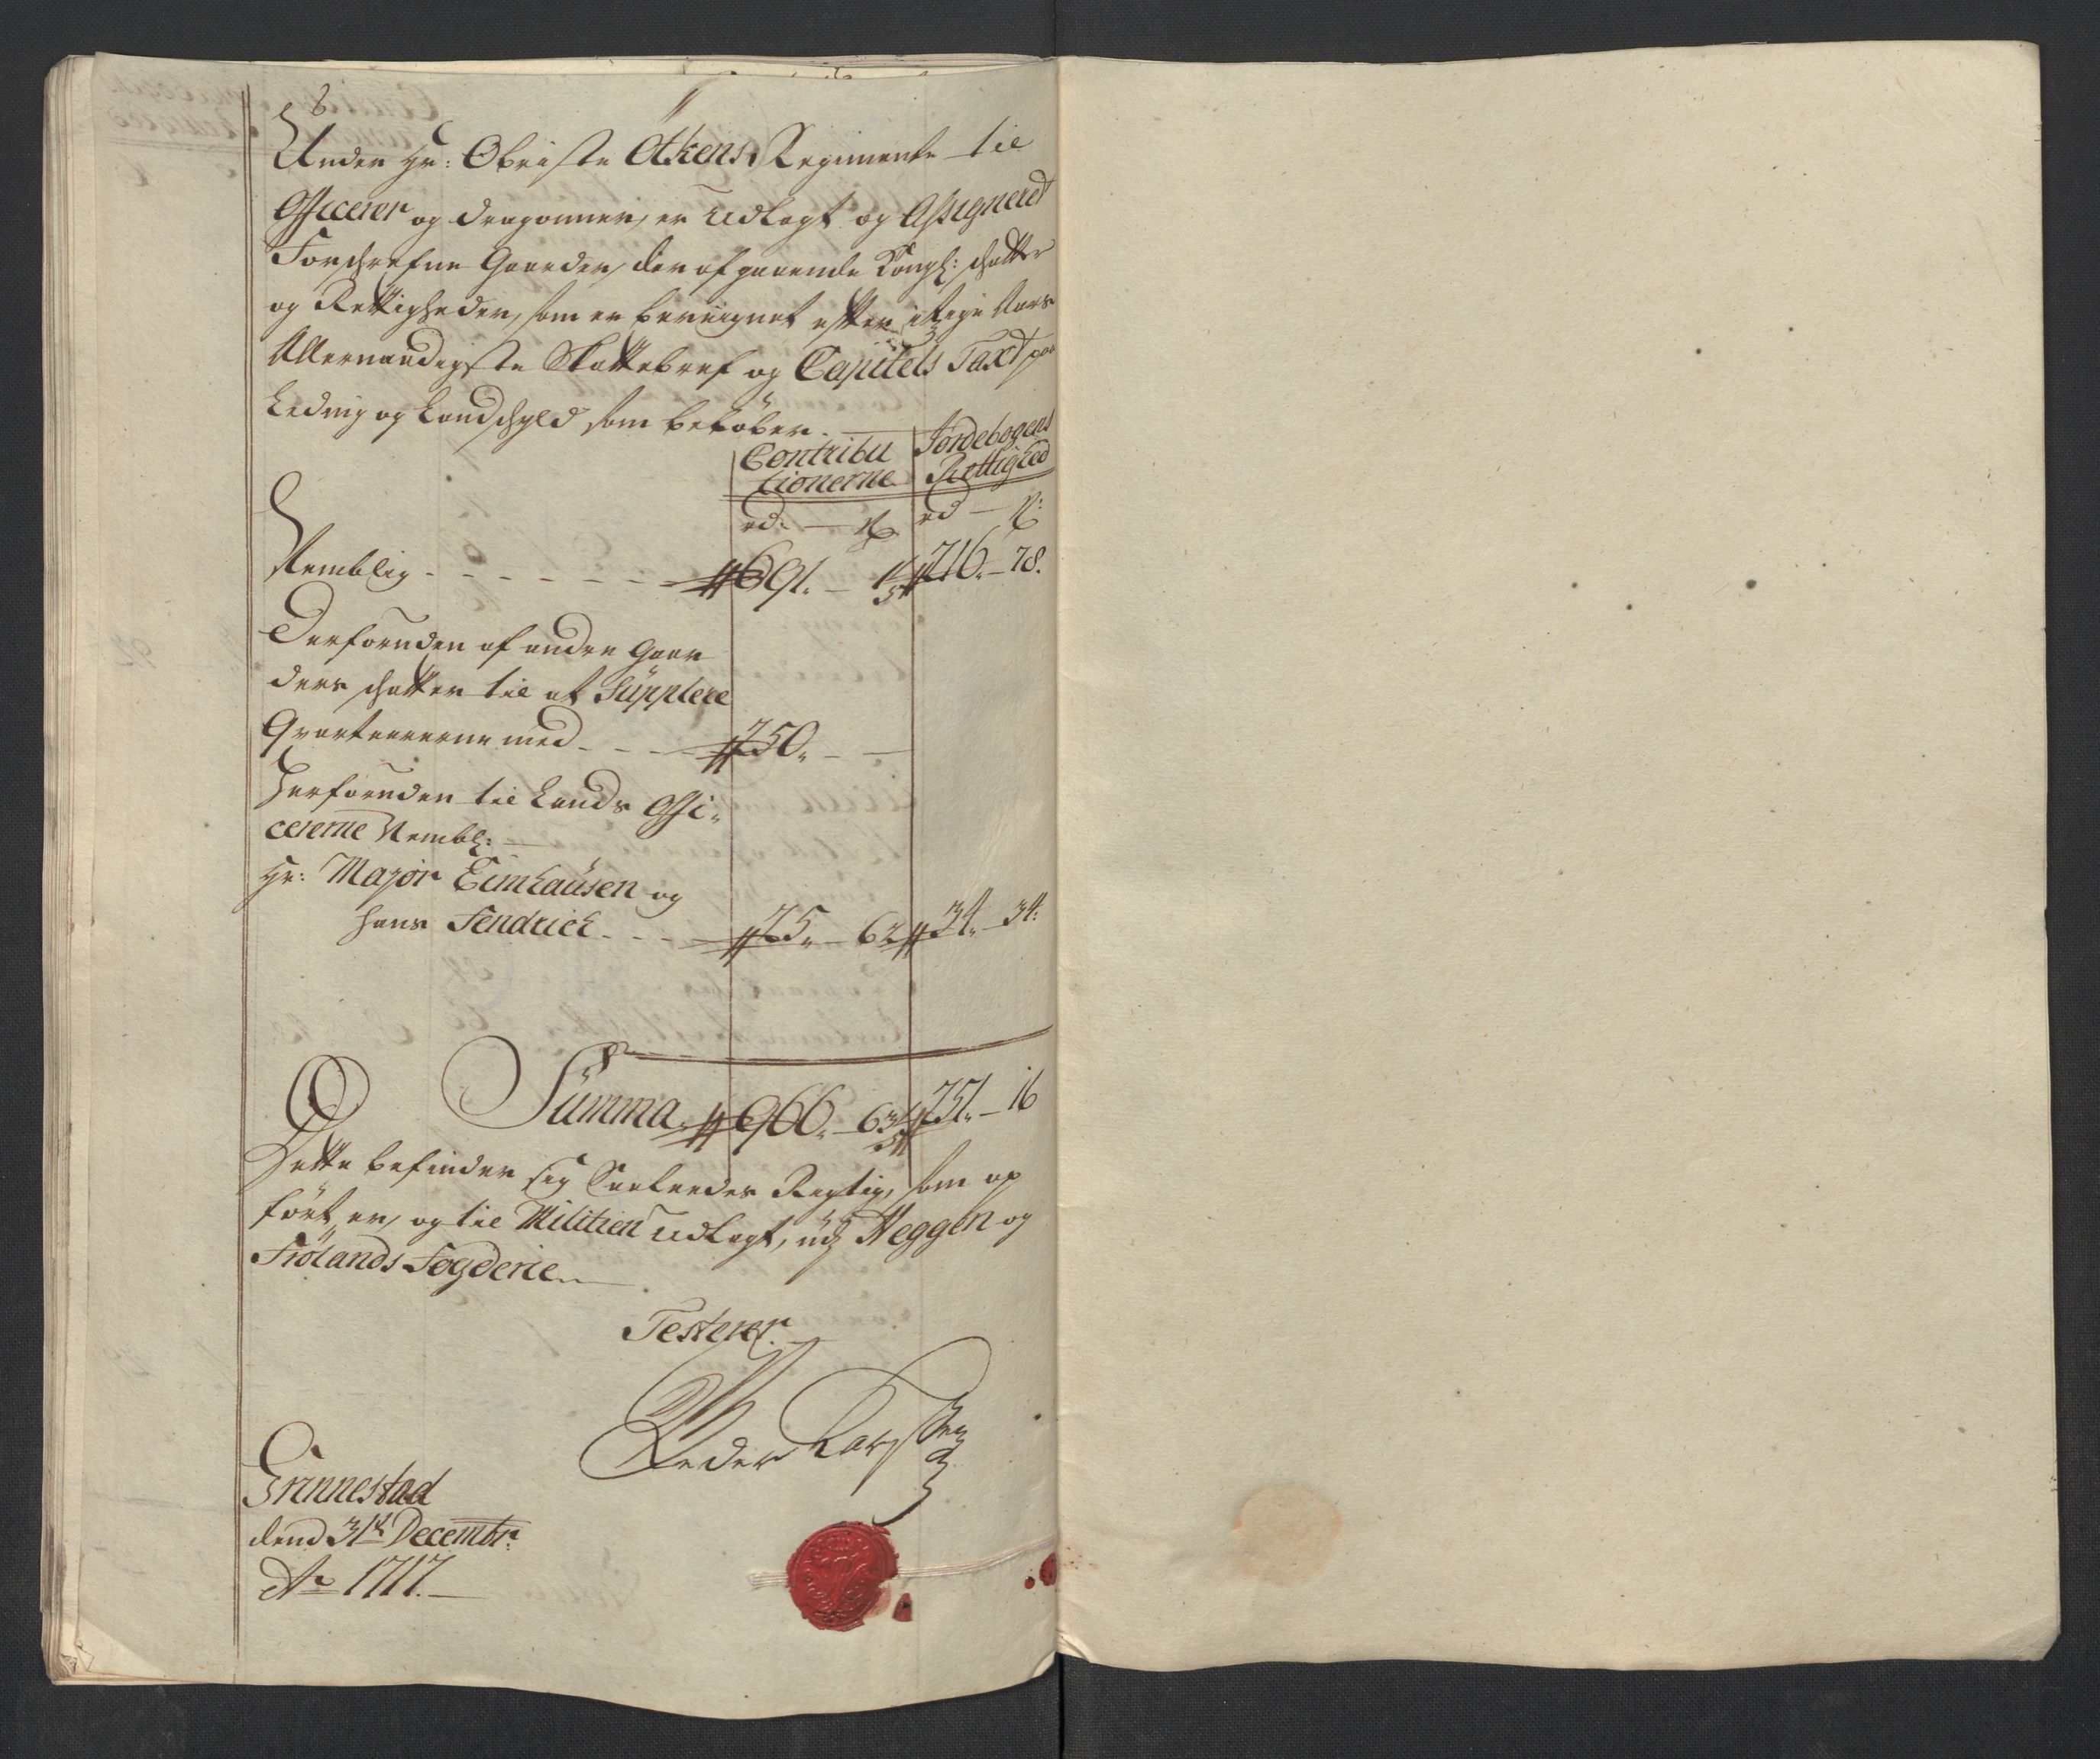 Under Hr: Obriste Ötkens Regimente til
Officerer og dragonner, er Udlagt og Assigneret
Forschrefne Gaarder, der af gaaende Kongl: schatter
og Rettigheder, som er bereignet efter itzige Aars
Allernaadigste Skattebref og Capitels Taxt paa
Leding og Landschyld som beløber.
Contributionerne Jordebogens Rettighed
rd: — ß rd — ß:
Nemblig - - - - - - 691. — 1/5 716. — 78.
Derforuden af andre Gaar
ders schatter til at Supplere
Qvarteererne med - - - 250. — —
Herforuden til Lands Offi-
cererne Nembl:
Hr: Major Eimhausen og
hans Fendrich - - - 25. — 62 34. — 34:
Summa 966. — 63 1/5 751. — 16
Dette befinder sig Saaleedes Rigtig, som op
ført er, og til Militien Udlagt, udj Heggen og
Frølands Fogderie
Testerer
Peder Karssen
Grinnestad
dend 31te Decembr:
Ao 1717.